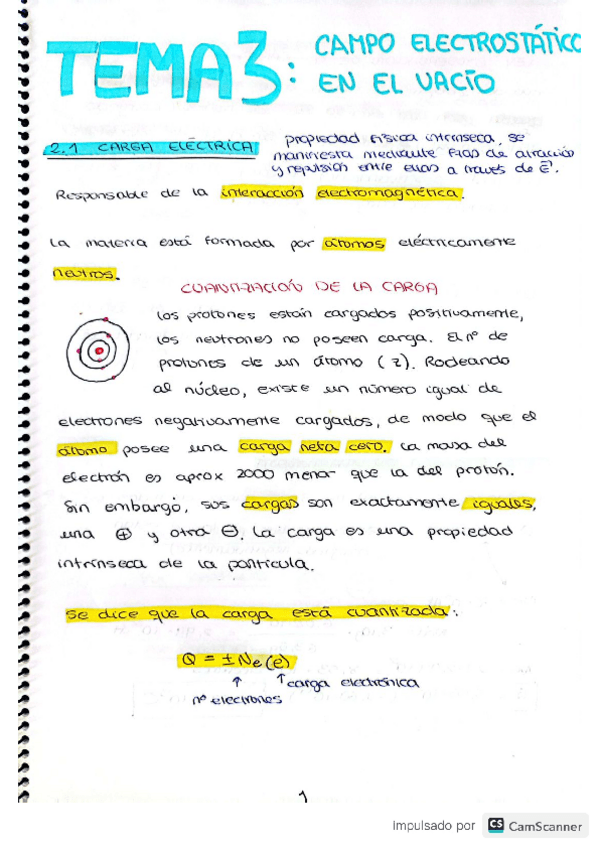 TEMA 3: CAMPO ELECTROSTÁTICO
EN EL VACÍO
2.1 CARGA ELÉCTRICA
propiedad física intrínseca, se
manifiesta mediante fzas de atracción
y repulsión entre ellas a través de E.
Responsable de la interacción electromagnética.
La materia está formada por átomos eléctricamente
neutros.
CUANTIZACIÓN DE LA CARGA
Los protones están cargados positivamente,
los neutrones no poseen carga. El nº de
protones de un átomo (z). Rodeando
al núcleo, existe un número igual de
electrones negativamente cargados, de modo que el
átomo posee una carga neta cero. La masa del
electrón es aprox 2000 menor que la del protón.
Sin embargo, sus cargas son exactamente iguales,
una ⊕ y otra ⊖. La carga es una propiedad
intrínseca de la partícula.
Se dice que la carga está cuantizada:
Q = ±Ne(e)
↑ ↑ carga electrónica
nº electrones
1
Impulsado por CS CamScanner